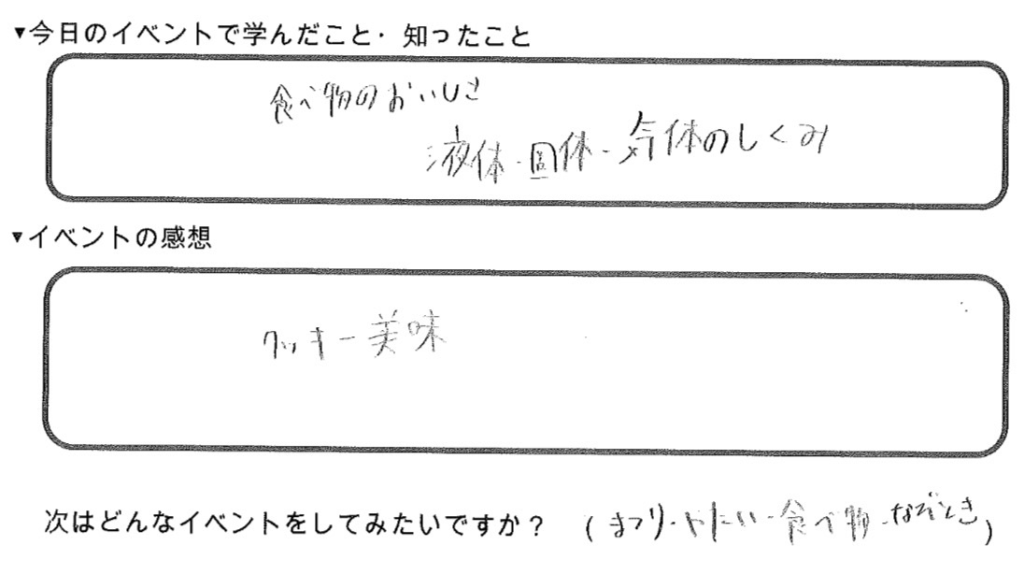 ▼今日のイベントで学んだこと・知ったこと
食べ物のおいしさ
液体・固体・気体のしくみ
▼イベントの感想
クッキー美味
次はどんなイベントをしてみたいですか？ (まつり・やたい・食べ物・なぞとき)